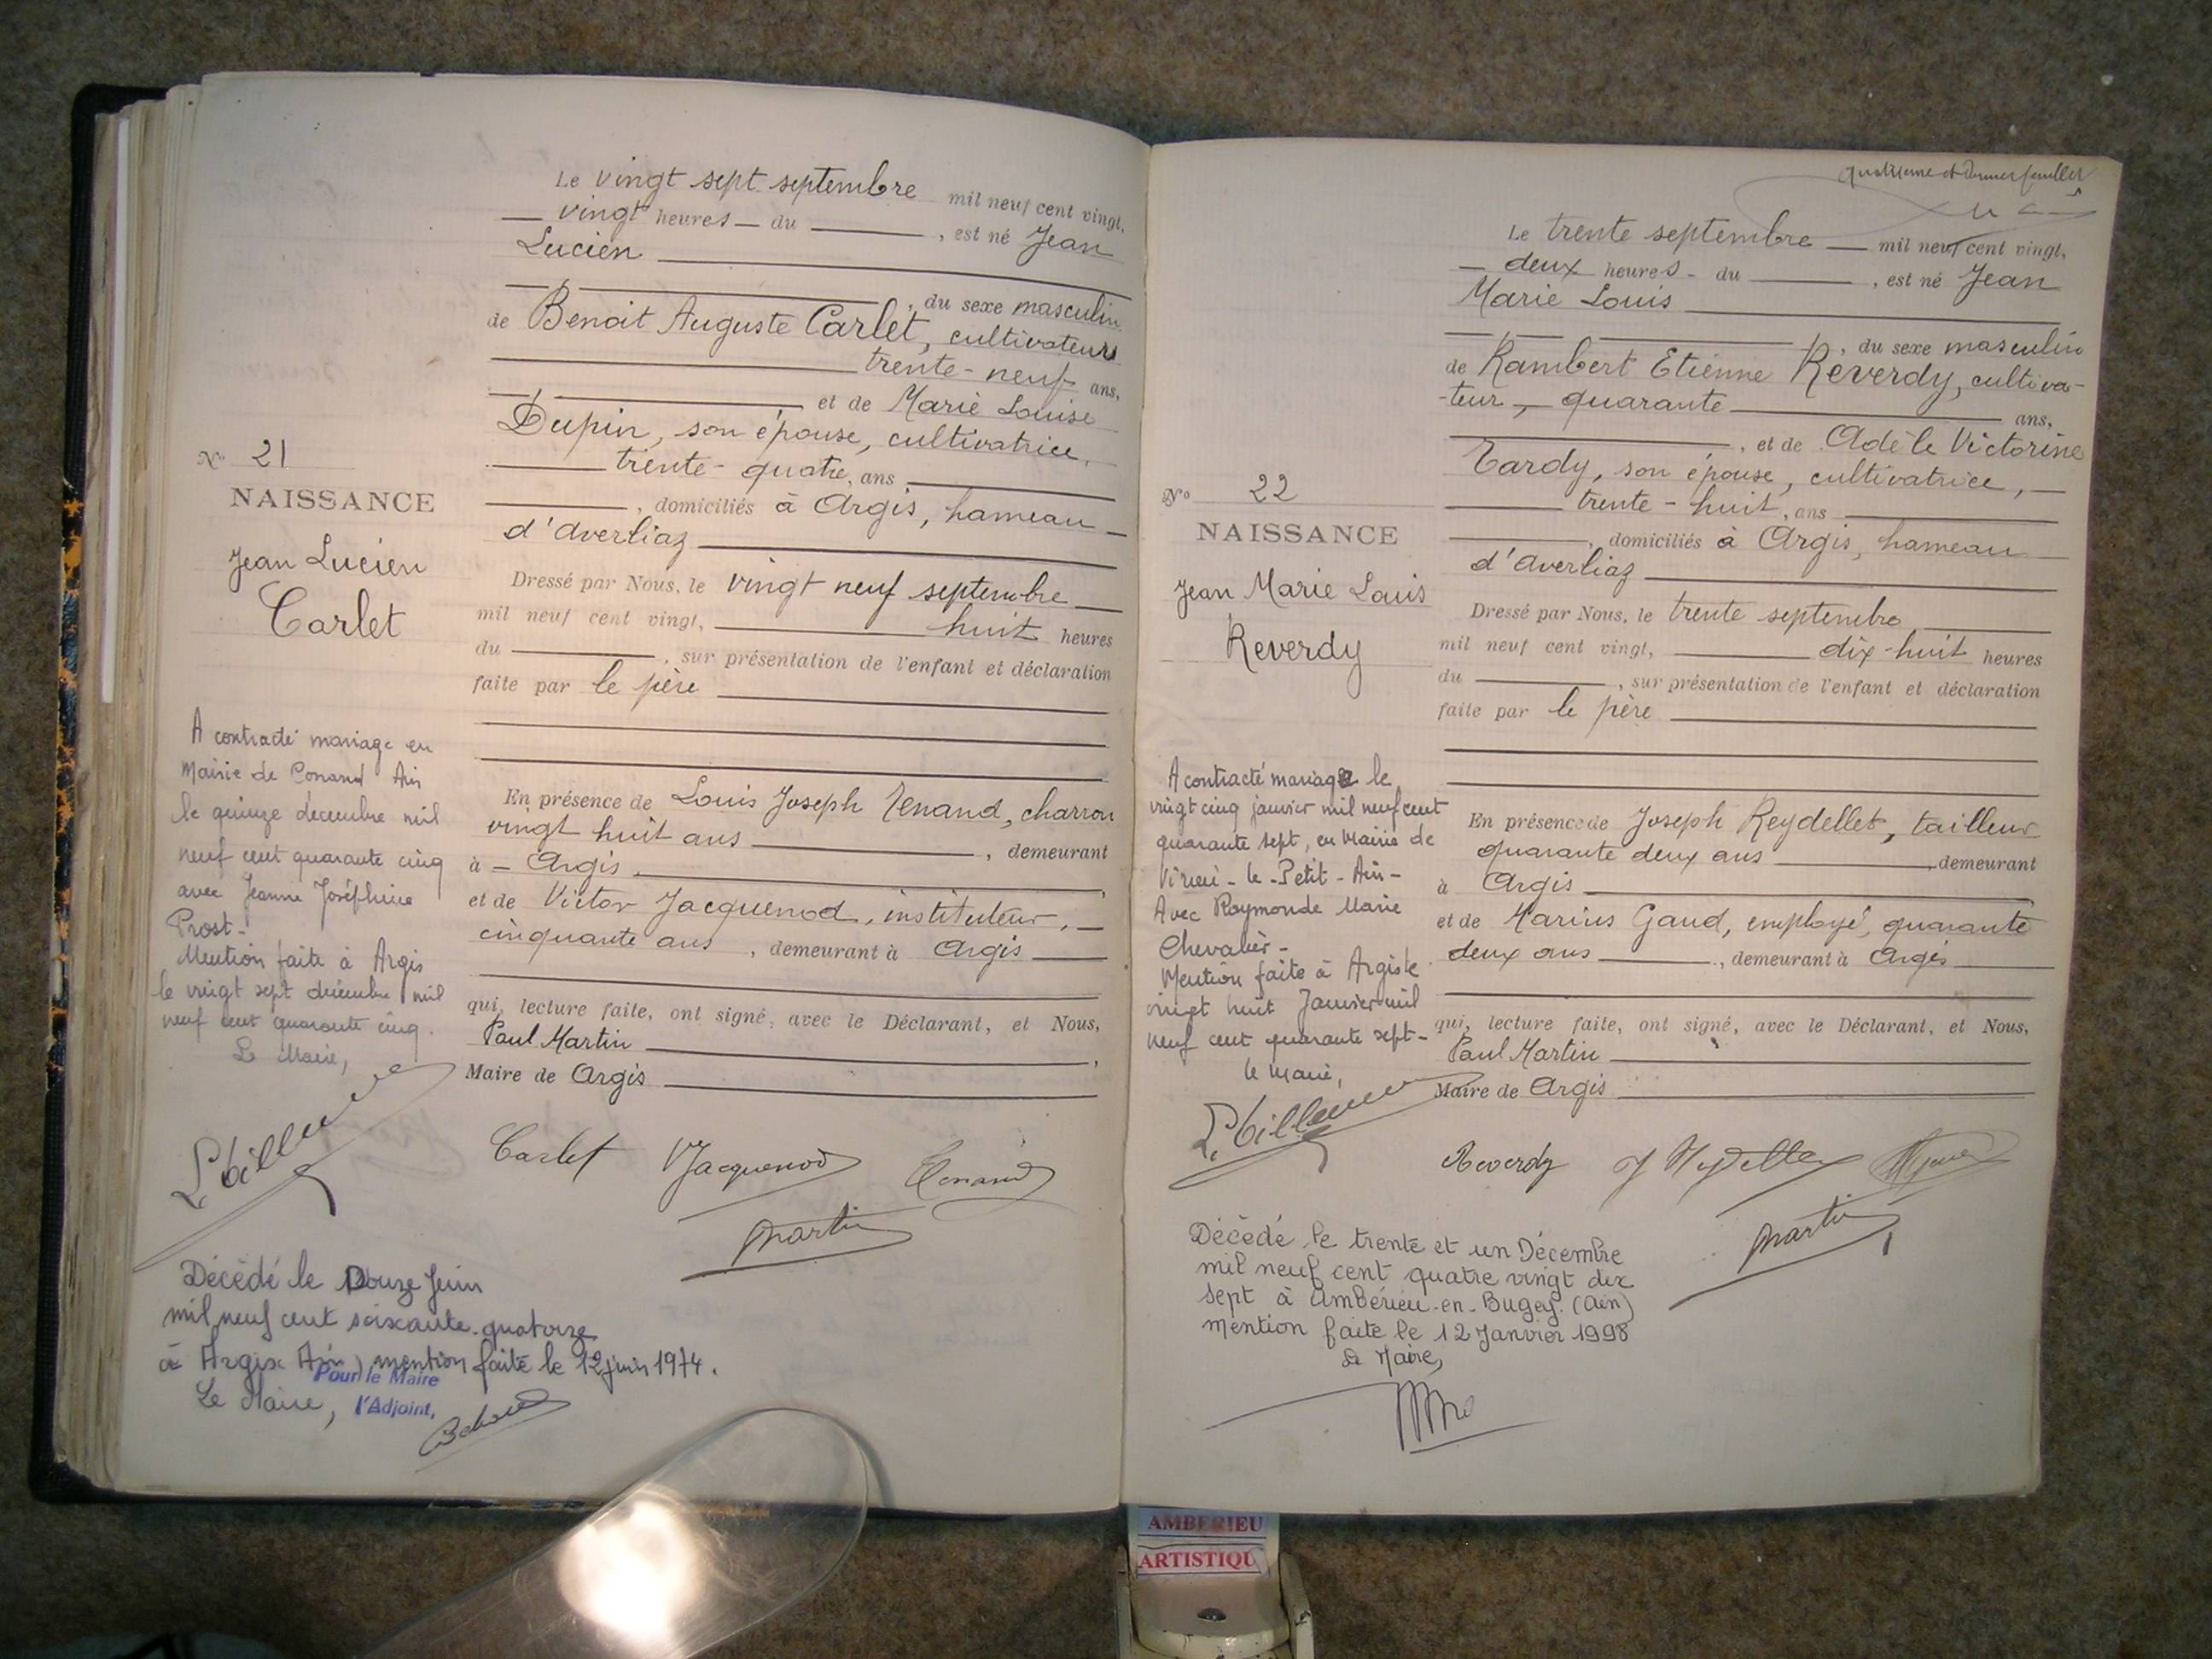 Le vingt sept septembre mil neuf cent vingt,
— vingt heures — du ———, est né Jean
Lucien
, du sexe masculin
de Benoit Auguste Carlet, cultivateurs
trente-neuf ans,
et de Marie Louise
Dupin, son épouse, cultivatrice,
trente-quatre, ans
, domiciliés à Argis, hameau
d'Averliaz
Dressé par Nous, le vingt neuf septembre
mil neuf cent vingt, huit heures
du ———, sur présentation de l'enfant et déclaration
faite par le père
En présence de Louis Joseph Tenand, charron
vingt huit ans ———, demeurant
à — Argis,
et de Victor Jacquenod, instituteur, —
cinquante ans, demeurant à Argis
qui, lecture faite, ont signé, avec le Déclarant, et Nous,
Paul Martin ———,
Maire de Argis
Carlet VJacquenod Tenand
Martin
No 21
NAISSANCE
Jean Lucien
Carlet
A contracté mariage en
Mairie de Conand Ain
le quinze decembre mil
neuf cent quarante cinq
avec Jeanne Joséphine
Prost-
Mention faite à Argis
le vingt sept décembre mil
neuf cent quarante cinq.
Le Maire,
Décédé le Douze Juin
mil neuf cent soixante-quatorze
à Argis Ain) mention faite le 12 juin 1974.
Pour le Maire
Le Maire, l'Adjoint,
Le trente septembre — mil neuf cent vingt,
— deux heures - du ———, est né Jean
Marie Louis
, du sexe masculin
de Rambert Etienne Reverdy, cultiva-
-teur, — quarante ——— ans,
, et de Adèle Victorine
Tardy, son épouse, cultivatrice, —
trente-huit, ans
, domiciliés à Argis, hameau
d'Averliaz
Dressé par Nous, le trente septembre
mil neuf cent vingt, dix-huit heures
du ———, sur présentation de l'enfant et déclaration
faite par le père
En présence de Joseph Reydellet, tailleur
quarante deux ans ———, demeurant
à Argis
et de Marius Gaud, employé, quarante
deux ans ———, demeurant à Argis
qui, lecture faite, ont signé, avec le Déclarant, et Nous,
Paul Martin
Maire de Argis
Reverdy J Reydellet
Martin
No 22
NAISSANCE
Jean Marie Louis
Reverdy
A contracté mariage le
vingt cinq janvier mil neuf cent
quarante sept, en Mairie de
Virieu-le-Petit-Ain-
Avec Raymonde Marie
Chevalier-
Mention faite à Argis le
vingt huit Janvier mil
neuf cent quarante sept-
le Maire,
Décédé le trente et un Décembre
mil neuf cent quatre vingt dix
sept à Ambérieu-en-Bugey. (Ain)
mention faite le 12 Janvier 1998
Le Maire,
AMBERIEU
ARTISTIQU